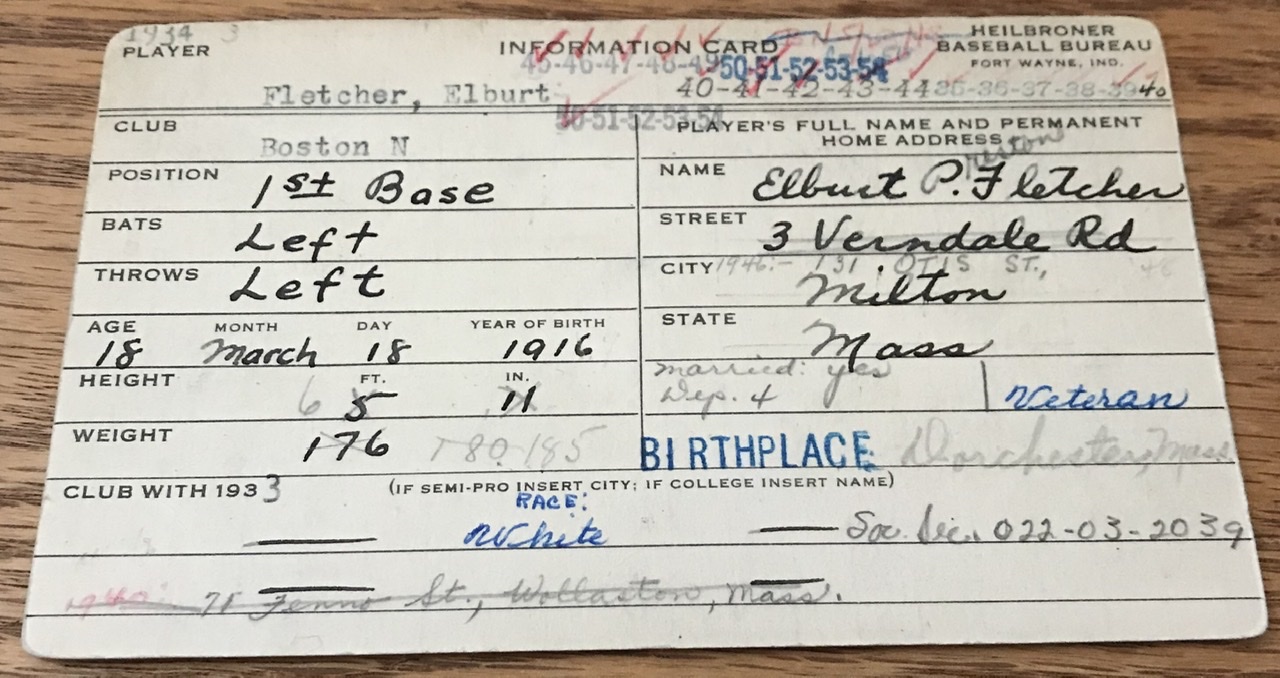 1934 3
PLAYER
INFORMATION CARD
HEILBRONER
BASEBALL BUREAU
FORT WAYNE, IND.
45-46-47-48-49 50-51-52-53-54
Fletcher, Elburt
40-41-42-43-44 35-36-37-38-39 40
50-51-52-53-54
CLUB
Boston N
PLAYER'S FULL NAME AND PERMANENT
HOME ADDRESS
POSITION
1st Base
NAME
Preston
Elburt P. Fletcher
BATS
Left
STREET
3 Verndale Rd
THROWS
Left
CITY
1946:- 131 OTIS ST., 46
Milton
AGE
MONTH
DAY
YEAR OF BIRTH
18 March 18 1916
STATE
Mass
HEIGHT
FT.
IN.
6 5 11
married: yes
Dep. 4
Veteran
WEIGHT
176 180-185
BIRTHPLACE Dorchester, Mass
CLUB WITH 1933
(IF SEMI-PRO INSERT CITY; IF COLLEGE INSERT NAME)
RACE:
White
Soc. Sec. 022-03-2039
1940: 71 Fenno St., Wollaston, Mass.